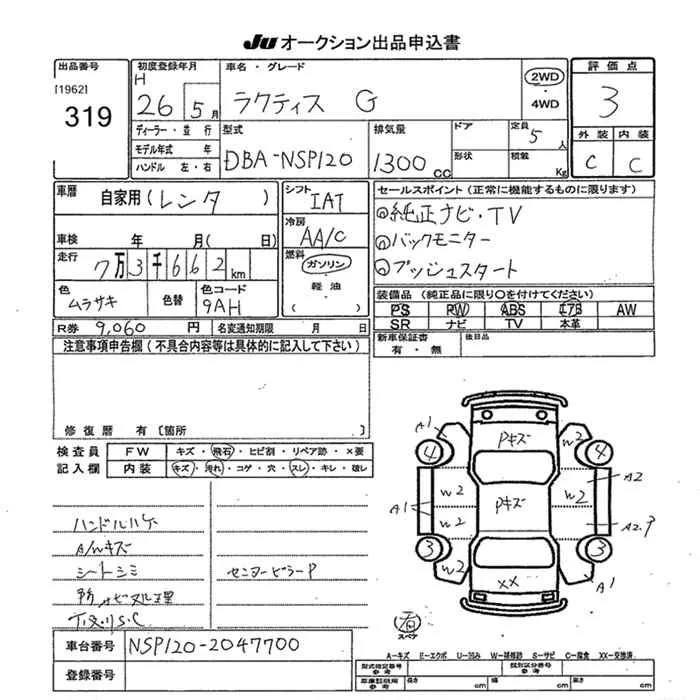 JU オークション出品申込書
出品番号
[1962]
319
初度登録年月
H
26 5月
車名・グレード
ラクティス G
2WD
・
4WD
評価点
3
外装 内装
C C
ディーラー・並行
モデル年式 年
ハンドル 左・右
型式
DBA-NSP120
排気量
1300cc
ドア
形状
定員
5人
積載
Kg
車暦
自家用(レンタ )
車検 年 月( 日)
走行
7万3千662km
色
ムラサキ
色替
色コード
9AH
シフト
IAT
冷房
AA/C
燃料
ガソリン
・
軽油
・
( )
セールスポイント(正常に機能するものに限ります)
◎純正ナビ・TV
◎バックモニター
◎プッシュスタート
装備品(純正品に限り〇を付けてください)
PS RW ABS エアB AW
SR ナビ TV 本革
R券 9,060 円 名変通知期限 月 日
新車保証書
有・無
後日品
注意事項申告欄(不具合内容等は具体的に記入して下さい)
修復暦 有〔箇所 〕
検査員
記入欄
FW キズ・飛石・ヒビ割・リペア跡・×要
内装 キズ・汚れ・コゲ・穴・スレ・キレ・破レ
ハンドルハゲ
A/Wキズ
シートシミ
センターピラーP
下廻りS.C
A1
W2
Pキズ
W2
4
4
W2
A2
A1
W2
Pキズ
W2
A2.P
3
3
W2
XX
A1
石
スペア
A-キズ E-エクボ U-凹み W-補修跡 S-サビ C-腐食 XX-交換済
車台番号
NSP120-2047700
登録番号
型式指定番号
参考
類別区分番号
参考
車庫証明用
参考
長さ cm
幅 cm
高さ cm